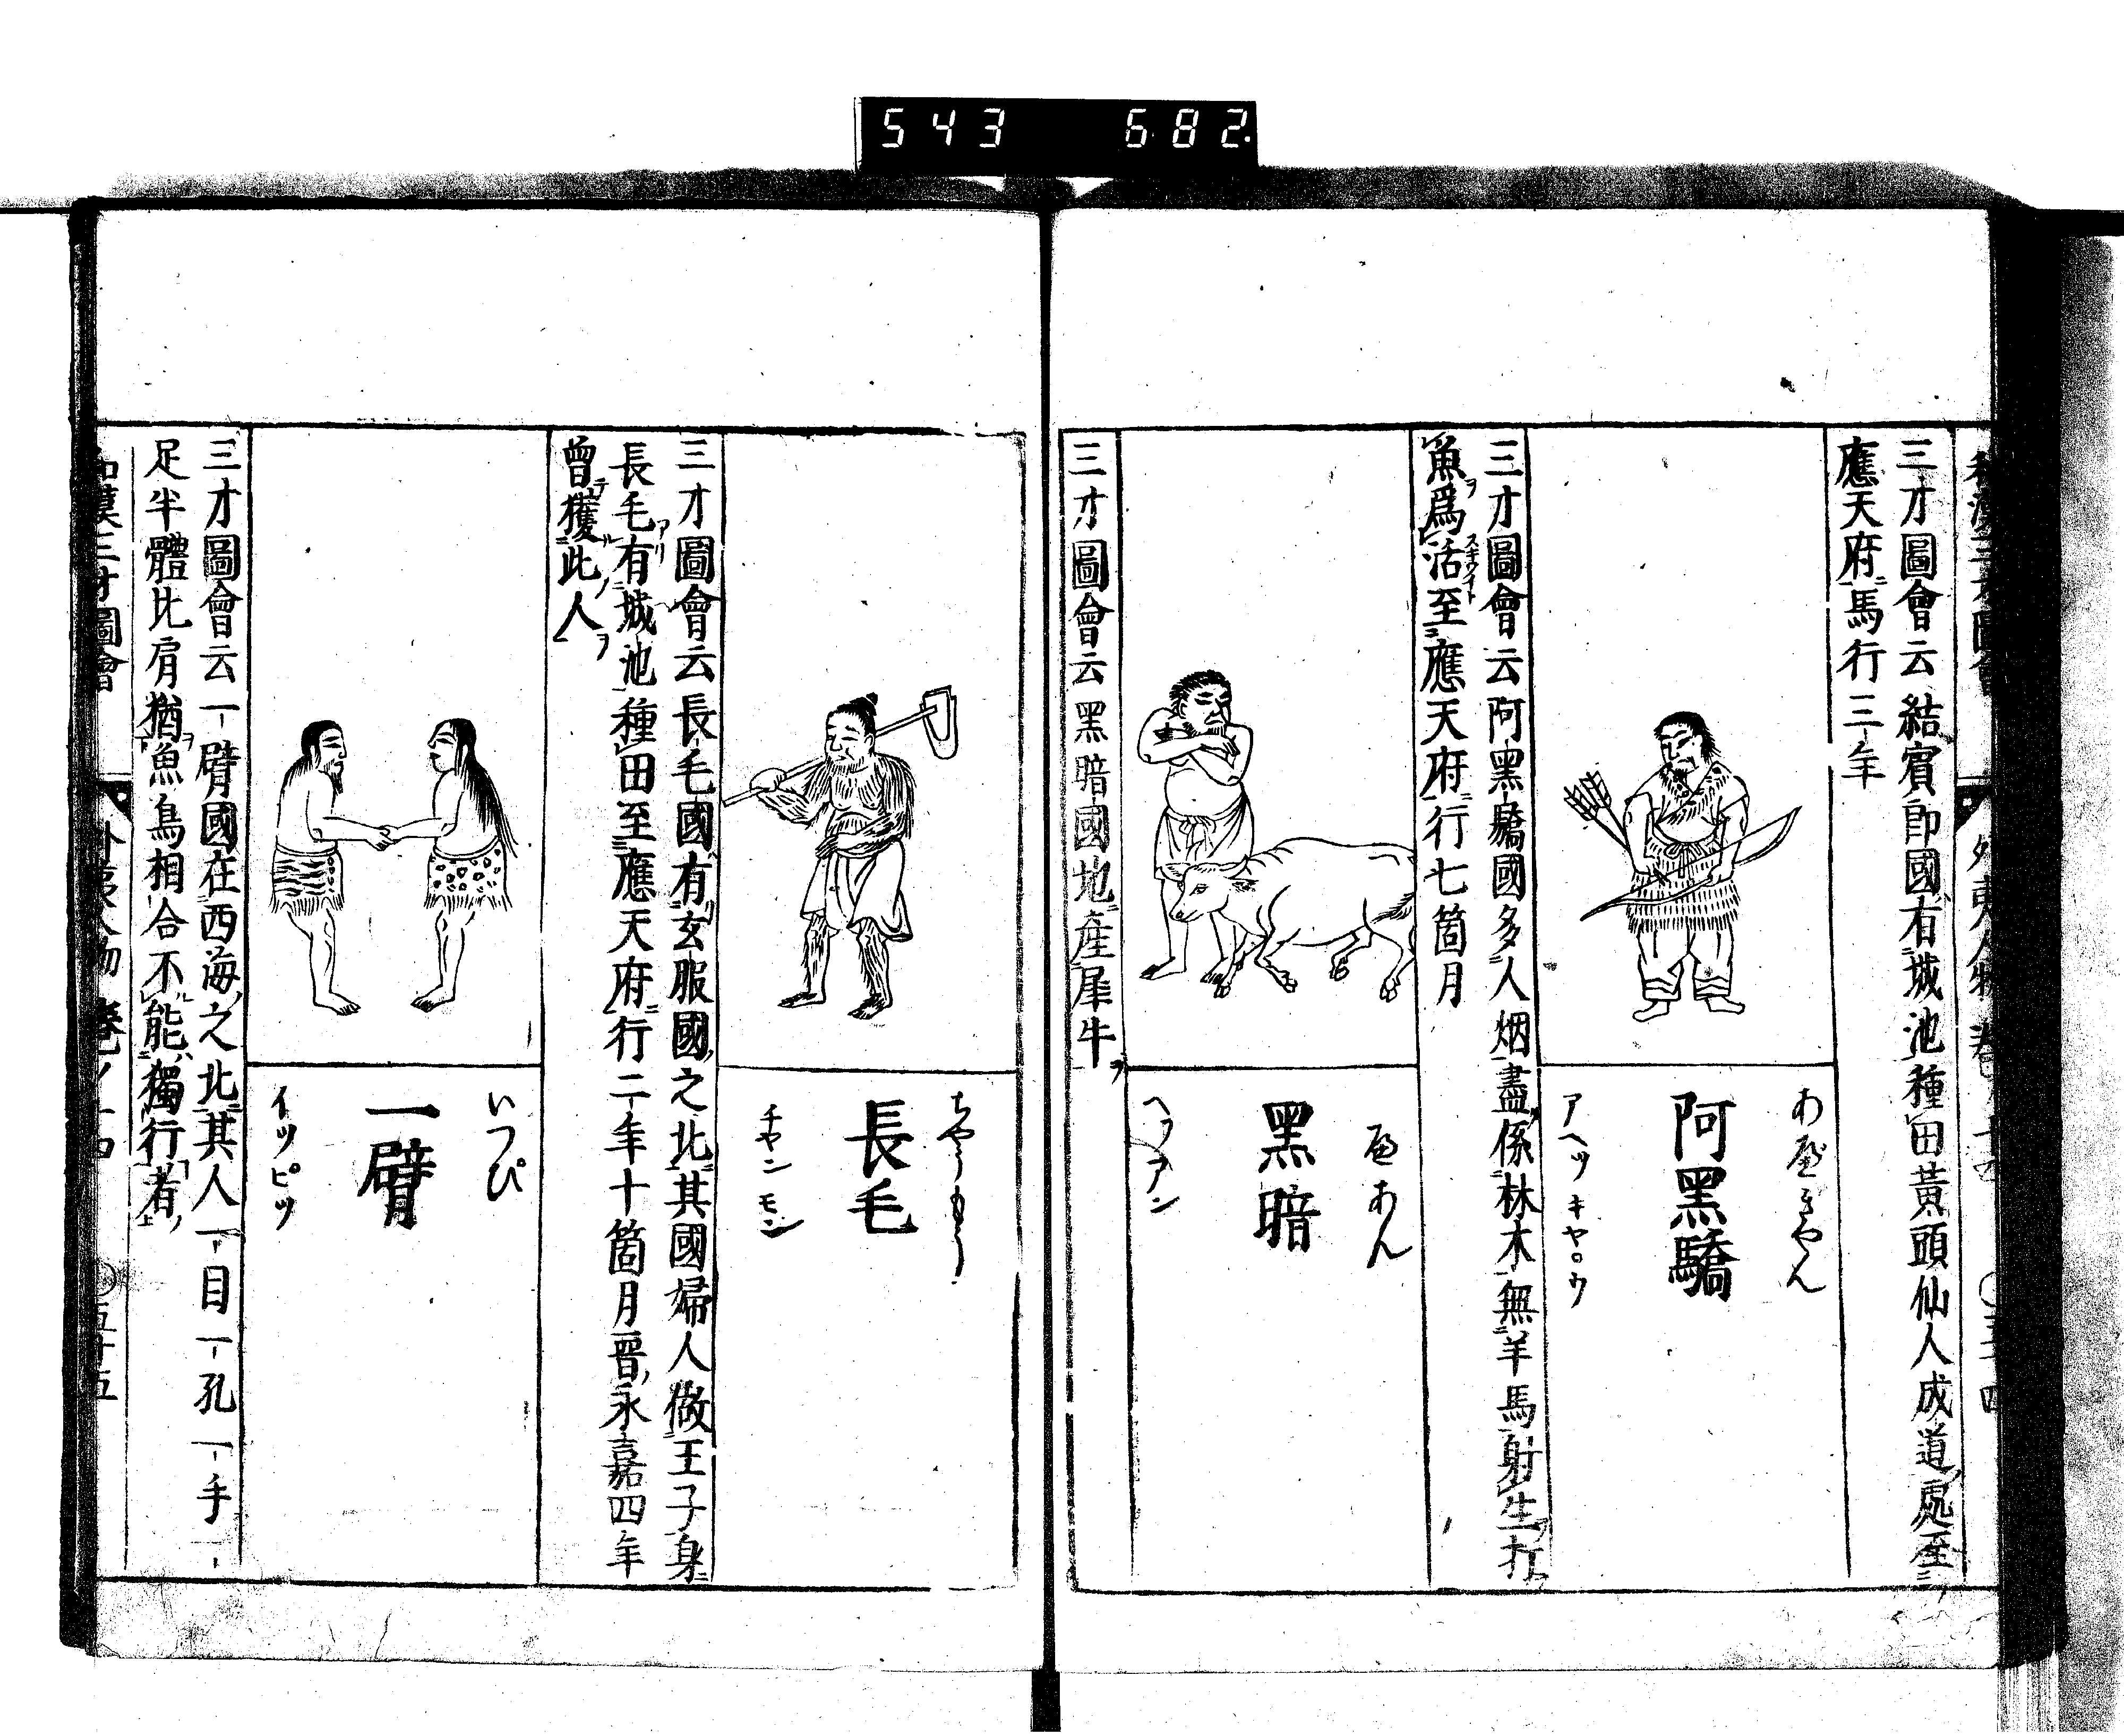 543 682
三才圖會云結賓郎國有城池種田黃頭仙人成道處至
應天府馬行三年
あ きやん
阿黑驕
アヘツキヤ○ウ
三才圖會云阿黑驕國多人烟盡係林木無羊馬射生打
魚爲活至應天府行七箇月
スギワイト
あん
黑暗
ヘツアン
三才圖會云黑暗國地產犀牛
ちやうもう
長毛
チヤンモン
三才圖會云長毛國有玄服國之北其國婦人做王子身
長毛有城池種田至應天府行二年十箇月晉永嘉四年
曾獲此人
いつぴ
一臂
イツピツ
三才圖會云一臂國在西海之北其人一目一孔一手一
足半體比肩猶魚鳥相合不能獨行者
和漢三才圖會 外夷人物 卷ノ十四 ○五十五